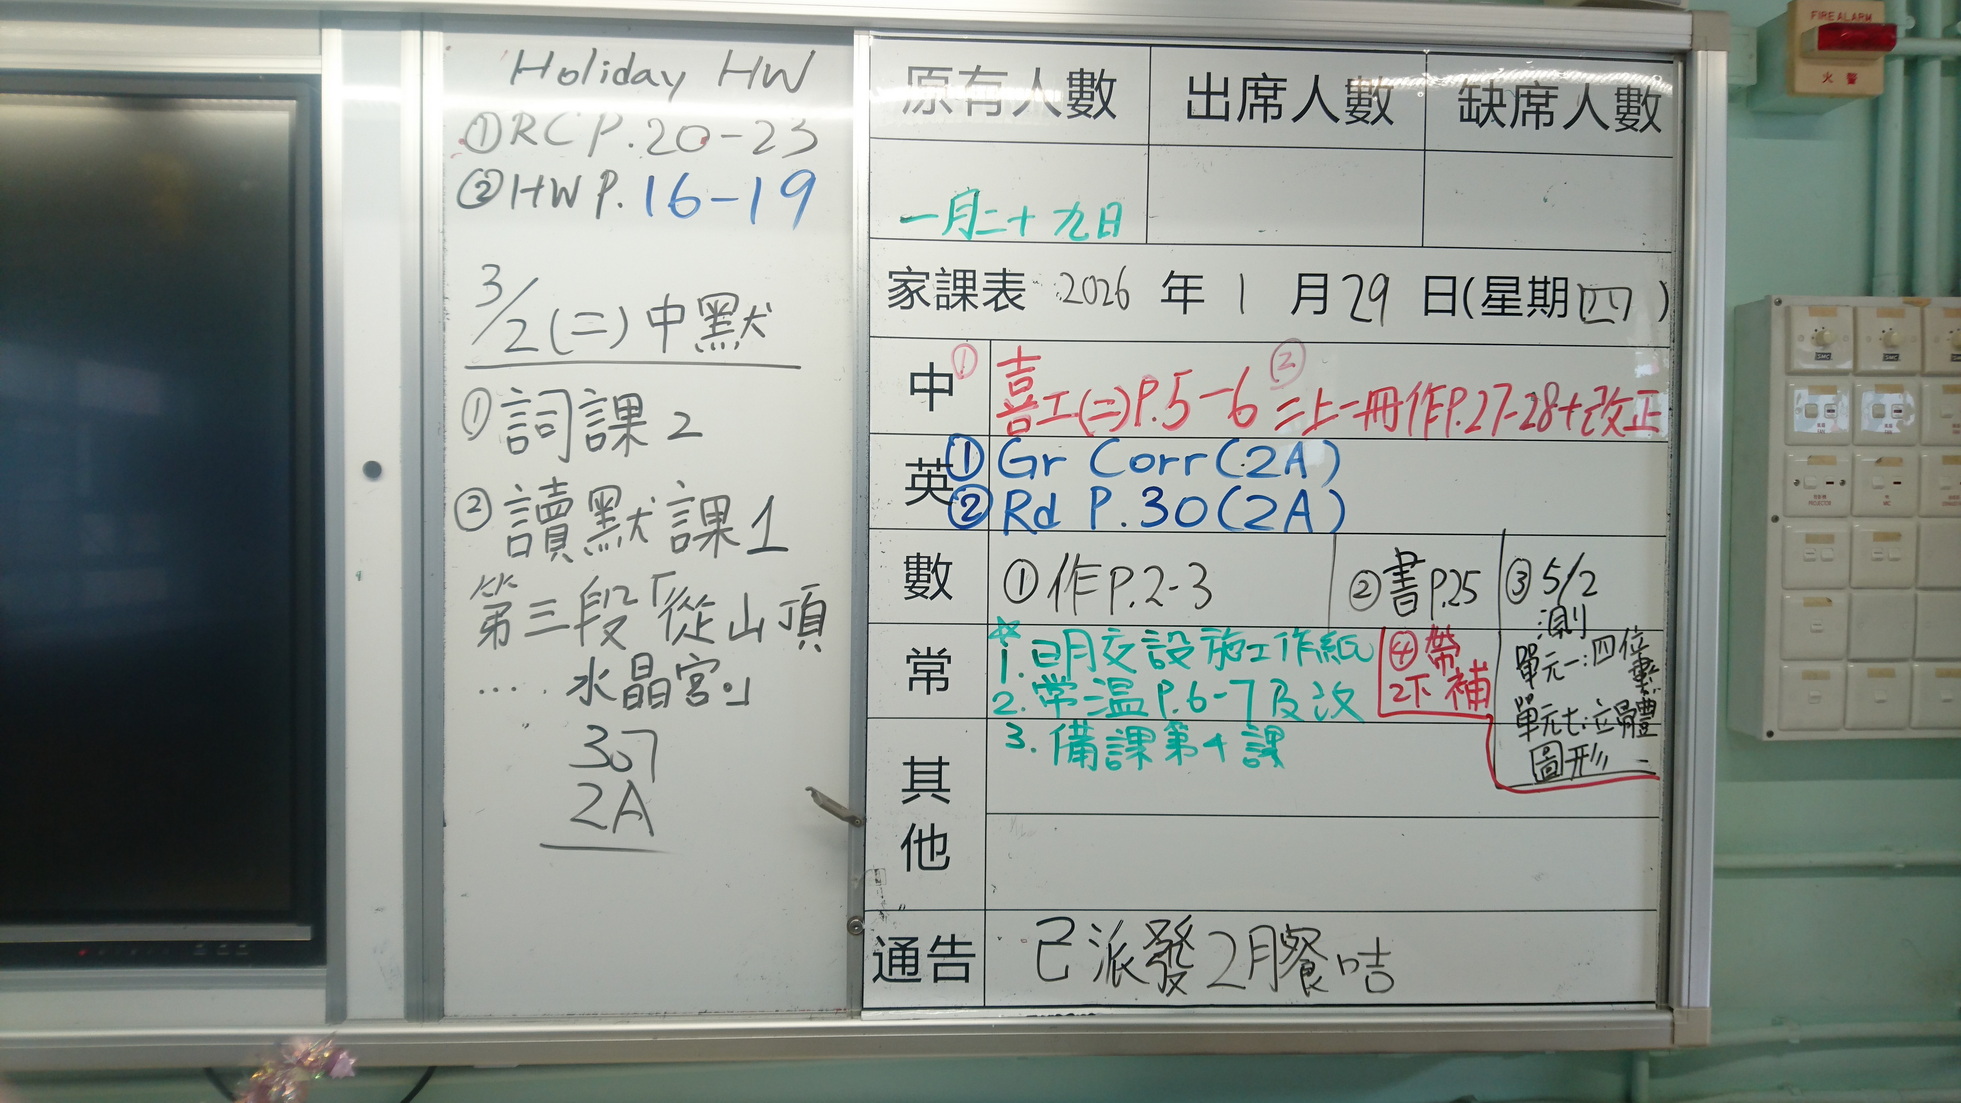 Holiday HW
①RC P.20-23
②HW P.16-19
3/2(二)中默
①詞課2
②讀默課1
第三段「從山頂
....水晶宮。」
307
2A
原有人數 出席人數 缺席人數
一月二十九日
家課表 2026年1月29日(星期四)
中 ①喜工(二)P.5-6 ②二上一冊作P.27-28+改正
英 ①Gr Corr(2A)
②Rd P.30(2A)
數 ①作P.2-3 ②書P.25 ③5/2
測
單元一:四位數
單元七:立體
圖形
④帶
2下補
常 1.明交設施工作紙
2.常溫P.6-7及改
3.備課第4課
其他
通告 已派發2月餐咭
FIRE ALARM
火警